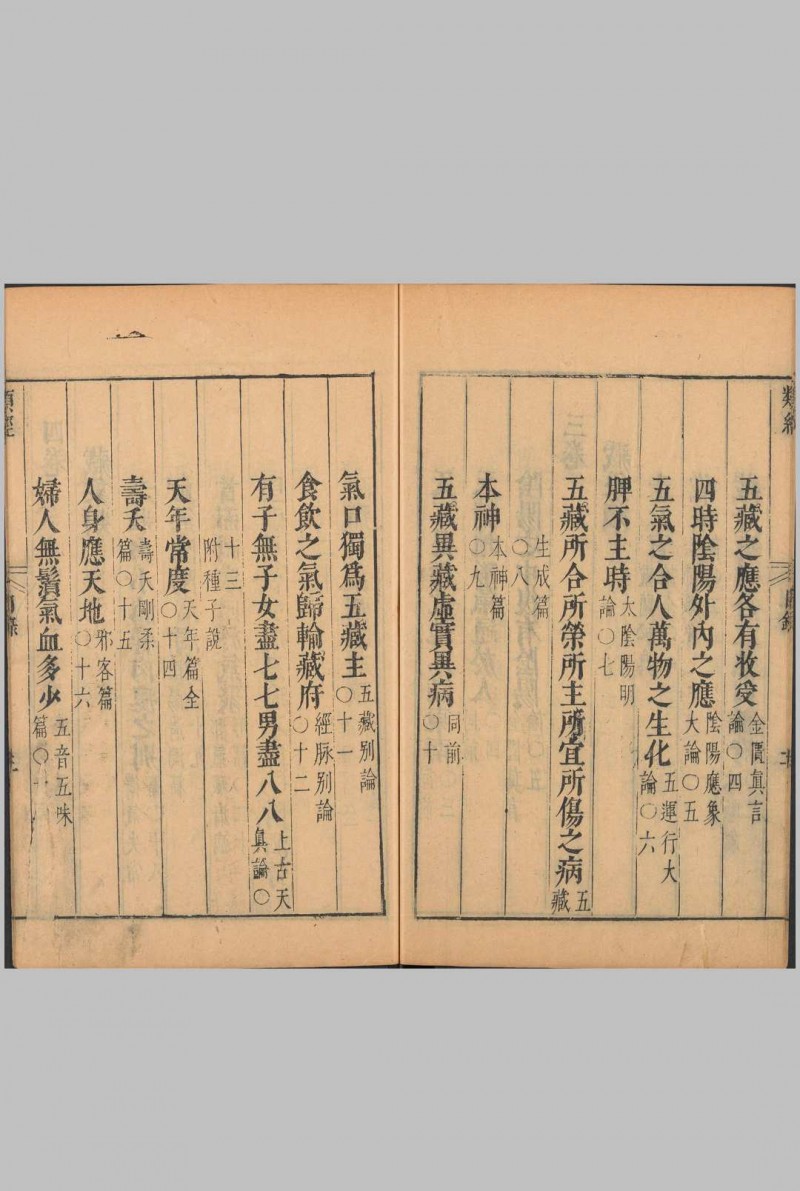 類經
五藏之應各有收受 金匱眞言論○四
四時陰陽外內之應 陰陽應象大論○五
五氣之合人萬物之生化 五運行大論○六
脾不主時 太陰陽明論○七
五藏所合所榮所主所宜所傷之病 五藏
生成篇○八
本神 本神篇○九
五藏異藏虛實異病 同前○十
氣口獨爲五藏主 五藏別論○十一
食飲之氣歸輸藏府 經脉別論○十二
有子無子女盡七七男盡八八 上古天眞論○
十三附種子說
天年常度 天年篇全○十四
壽夭 壽夭剛柔篇○十五
人身應天地 邪客篇○十六
婦人無鬚氣血多少 五音五味篇○十
類經